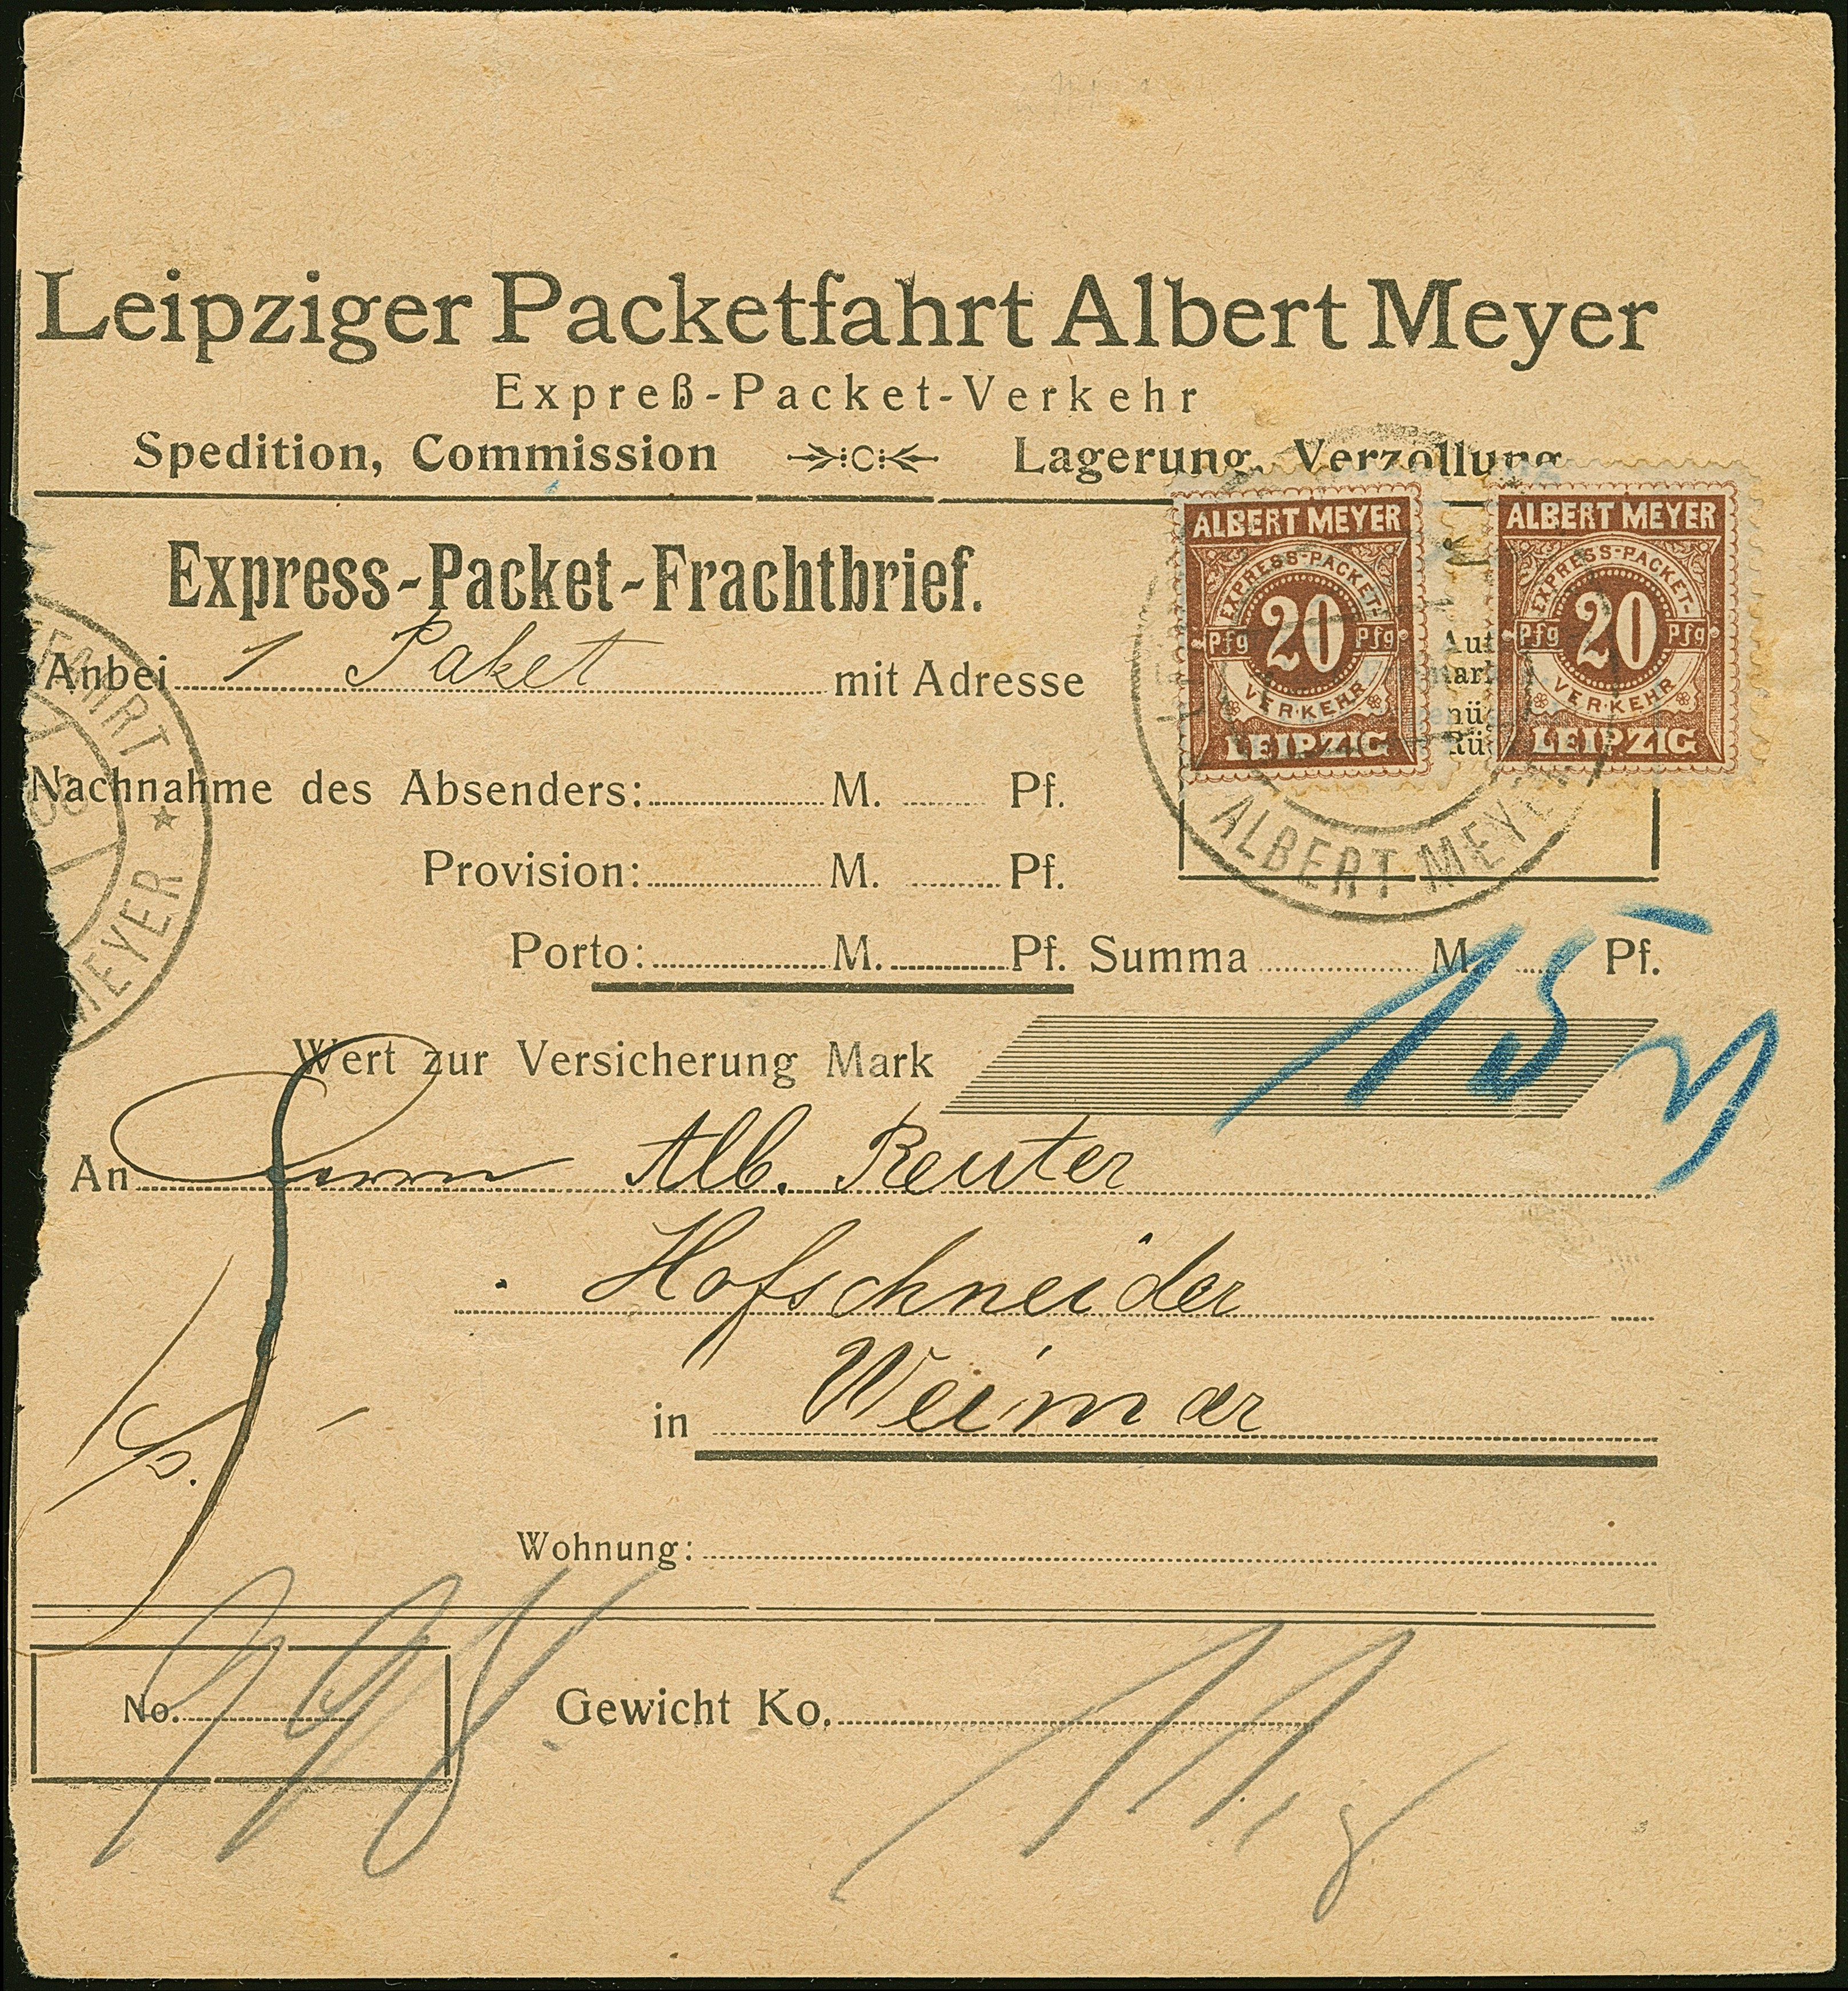 Leipziger Packetfahrt Albert Meyer
Expreß-Packet-Verkehr
Spedition, Commission Lagerung, Verzollung
Express-Packet-Frachtbrief.
ALBERT MEYER
EXPRESS-PACKET-
Pfg 20 Pfg
VERKEHR
LEIPZIG
ALBERT MEYER
EXPRESS-PACKET-
Pfg 20 Pfg
VERKEHR
LEIPZIG
ALBERT MEYER
FAHRT
MEYER
Anbei 1 Paket mit Adresse
Nachnahme des Absenders: M. Pf.
Provision: M. Pf.
Porto: M. Pf. Summa M. Pf.
15
Wert zur Versicherung Mark
An Herrn Alb. Reuter
Hofschneider
in Weimar
Wohnung:
No. Gewicht Ko. 11